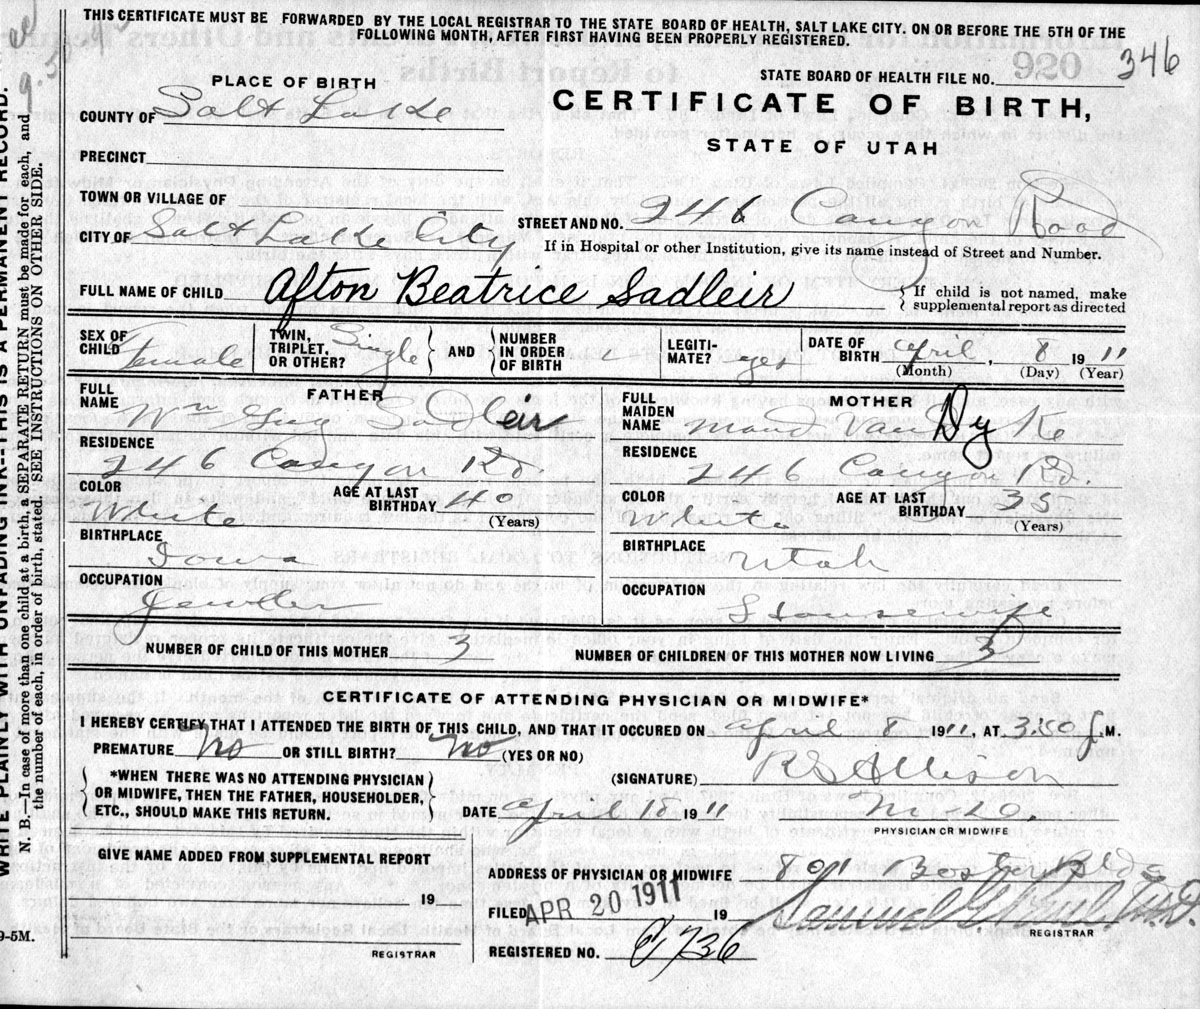 THIS CERTIFICATE MUST BE FORWARDED BY THE LOCAL REGISTRAR TO THE STATE BOARD OF HEALTH, SALT LAKE CITY. ON OR BEFORE THE 5TH OF THE
FOLLOWING MONTH, AFTER FIRST HAVING BEEN PROPERLY REGISTERED.
346
PLACE OF BIRTH
STATE BOARD OF HEALTH FILE NO.
COUNTY OF Salt Lake
CERTIFICATE OF BIRTH,
STATE OF UTAH
PRECINCT
TOWN OR VILLAGE OF
CITY OF Salt Lake City
STREET AND NO. 246 Canyon Road
If in Hospital or other Institution, give its name instead of Street and Number.
FULL NAME OF CHILD Afton Beatrice Sadleir
{ If child is not named, make
supplemental report as directed
SEX OF CHILD Female
TWIN, TRIPLET, OR OTHER? Single
AND NUMBER IN ORDER OF BIRTH
LEGITI-MATE? yes
DATE OF BIRTH April, 8 1911
(Month) (Day) (Year)
FATHER
FULL NAME Wm Guy Sadleir
RESIDENCE
246 Canyon Rd.
COLOR White
AGE AT LAST BIRTHDAY 40 (Years)
BIRTHPLACE
Iowa
OCCUPATION
Jeweler
MOTHER
FULL MAIDEN NAME Maud Van Dyke
RESIDENCE
246 Canyon Rd.
COLOR White
AGE AT LAST BIRTHDAY 35 (Years)
BIRTHPLACE
Utah
OCCUPATION
Housewife
NUMBER OF CHILD OF THIS MOTHER 3
NUMBER OF CHILDREN OF THIS MOTHER NOW LIVING 3
CERTIFICATE OF ATTENDING PHYSICIAN OR MIDWIFE*
I HEREBY CERTIFY THAT I ATTENDED THE BIRTH OF THIS CHILD, AND THAT IT OCCURED ON April 8 1911, AT 3:50 P.M.
PREMATURE No OR STILL BIRTH? No (YES OR NO)
*WHEN THERE WAS NO ATTENDING PHYSICIAN
OR MIDWIFE, THEN THE FATHER, HOUSEHOLDER,
ETC., SHOULD MAKE THIS RETURN.
(SIGNATURE) R S Allison
DATE April 18 1911
M.D.
PHYSICIAN OR MIDWIFE
GIVE NAME ADDED FROM SUPPLEMENTAL REPORT
19
REGISTRAR
ADDRESS OF PHYSICIAN OR MIDWIFE 801 Boston Bldg
FILED APR 20 1911 19
REGISTRAR
REGISTERED NO. 736
9-5M.
WRITE PLAINLY WITH UNFADING INK--THIS IS A PERMANENT RECORD.
N. B.—In case of more than one child at a birth, a SEPARATE RETURN must be made for each, and
the number of each, in order of birth, stated. SEE INSTRUCTIONS ON OTHER SIDE.